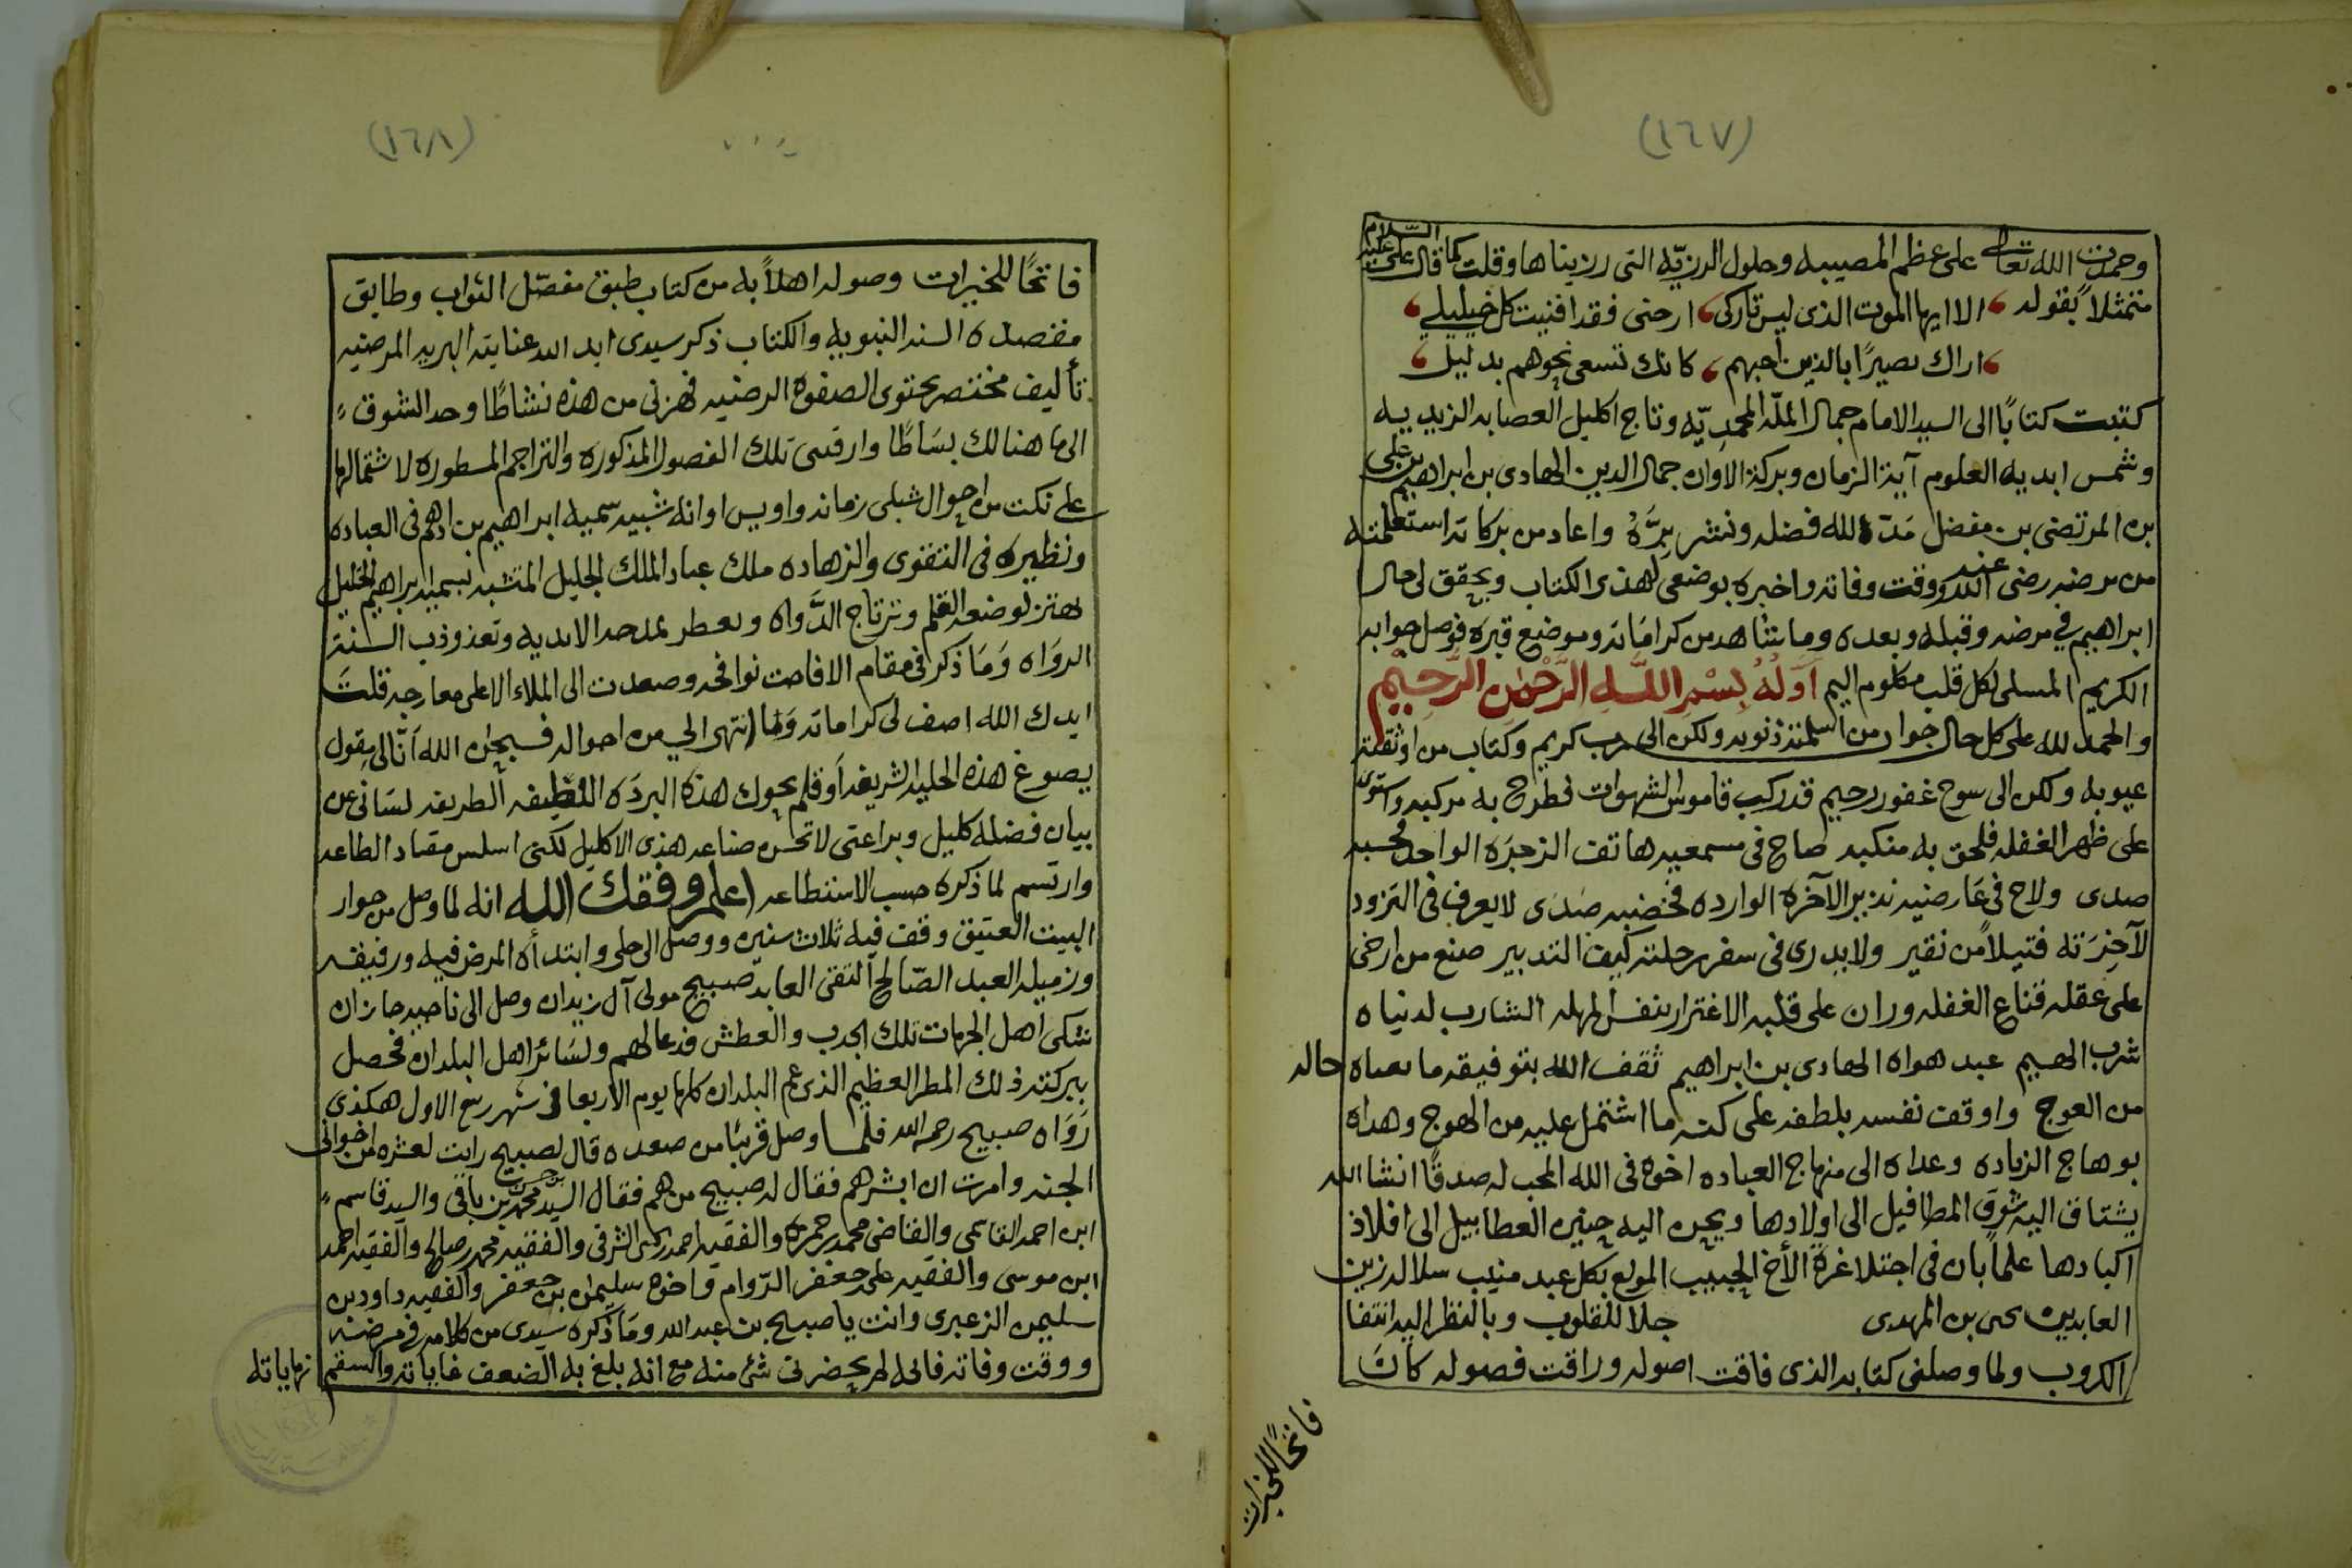 (١٦٧)
وحمدت الله تعالى على عظم المصيبه وحلول الرزيّه التى رزيناها وقلت كما قال على عليه السّلام
متمثلاً بقوله الا ايها الموت الذى ليس تاركى ارحنى فقد افنيت كل خليلي
اراك بصيرًا بالذين احبهم كانك تسعى نحوهم بدليل
كتبت كتابًا الى السيد الامام جمال الملّه المحمديّه وتاج اكليل العصابه الزيديه
وشمس ابديه العلوم آية الزمان وبركة الاوان جمال الدين الهادى بن ابراهيم بن على
بن المرتضى بن مفضل مَدّ الله فضله ونشر بِرَّهُ واعاد من بركاته استعلمته
من مرضه رضى الله عنه ووقت وفاته واخبره بوضعى لهذى الكتاب ويحقق لى حال
ابراهيم في مرضه وقبله وبعده وما شاهد من كراماته وموضع قبره فوصل جوابه
الكريم المسلى لكل قلب مكلوم اليم اَوّلُهُ بِسْمِ اللَّهِ الرَّحْمٰنِ الرَّحِيْمِ
والحمد لله على كل حال جواب من اسلمته ذنوبه ولكن الى رب كريم وكتاب من اوثقته
عيوبه ولكن الى سوح غفور رحيم قد ركب قاموس الشهوات فطرح به مركبه واستوى
على ظهر الغفله فلحق به منكبه صاح فى مسمعيه هاتف الزجرَه الواحده فحسبه
صدى ولاح فى عَارضيه نذير الآخرة الوارده فخضبه صَدَى لا يعرف فى التزود
لآخِرَته فتيلاً من نقير ولا يدرى فى سفر رحلته كيف التدبير صنع من ارخى
على عقله قناع الغفله وران على قلبه الاغترار بنفس المهله الشارب لدنياه
شرب الهيم عبد هواه الهادى بن ابراهيم ثقف الله بتوفيقه ما حاله
من العوج واوقف نفسه بلطفه على كنه ما اشتمل عليه من الهوج وهداه
بوهاج الزياده وعداه الى منهاج العباده اخوه فى الله المحب له صدقًا انشا الله
يشتاق اليه شوق المطافيل الى اولادها ويحن اليه حنين العطابيل الى افلاذ
اكبادها علمًا بان فى اجتلا غرة الأخ الحبيب المولع بكل عبد منيب سلاله زين
العابدين يحى بن المهدى جلاً للقلوب وبالنظر اليه انتفا
الكروب ولما وصلنى كتابه الذى فاقت اصوله وراقت فصوله كانَ
فاتحًا للخيرات
(١٦٨)
فاتحًا للخيرات وصوله اهلاً به من كتاب طبق مفصّل الثواب وطابق
مفصله السنه النبويه والكتاب ذكر سيدى ايد الله عنايته البريه المرضيه
تأليف مختصر يحتوى الصفوه الرضيه فهزنى من هذه نشاطًا وحد الشوق
الى ما هنالك بسَاطًا وارقنى تلك الفصول المذكوره والتراجم المسطوره لاشتمالها
على نكت من احوال شبلى زمانه واويس اوانه شبيه سميه ابراهيم بن ادهم فى العباده
ونظيره فى التقوى والزهاده ملك عباد الملك الجليل المتشبه بسميه ابراهيم الخليل
يهتز لوضعه القلم وترتاج الدَّواه ويعطر بمدحه الانديه وتعذوذب السنة
الروَاه وَمَا ذكر فى مقام الا فاحت نوافحه وصعدت الى الملاء الاعلى معارجه قلتَ
ايدك الله اصف لى كراماته وَمَا انتهى الي من احواله فسبحٰن الله اَنّى لى بقول
يصوغ هذه الحليه الشريفه اَو قلم يحوك هذه البردَه اللطيفه الطريفه لسَانى عن
بيان فضله كليل وبراعتى لا تحسن صناعه هذى الاكليل لكنى اسلس مقاد الطاعه
وارتسم لما ذكره حسب الاستطاعه اعلم وفقك الله انه لما وصل من جوار
البيت العتيق وقف فيه ثلاث سنين ووصل الى حلى وابتدأه المرض فيه ورفيقه
وزميله العبد الصّالح التقى العابد صبيح مولى آل زيدان وصل الى ناحيه جازان
شكى اهل الجهات تلك الجدب والعطش فدعا لهم ولسَائر اهل البلدان فحصل
ببركته ذلك المطر العظيم الذى عم البلدان كلها يوم الاربعا فى شهر ربيع الاول هكذى
رَوَاه صبيح رحمه الله فلما وصل قريبًا من صعده قال لصبيح رايت لعشره من اخوانى
الجنه وامرت ان ابشرهم فقال له صبيح من هم فقال السيد محمد بن حسن بن باقى والسيد قاسم
ابن احمد القاسمى والقاضى محمد بن حمزه والفقيه احمد بن يحيى الشرفى والفقيه محمد بن صالح والفقيه احمد
ابن موسى والفقيه على بن جعفر الدّوام واخوه سليمٰن بن جعفر والفقيه داود بن
سليمٰن الزعبرى وانت يا صبيح بن عبد الله وَمَا ذكره سيدى من كلامه فى مرضه
ووقت وفاته فالحمد لم يحضرنى شئ منه مع انه بلغ به الضعف غاياته والسقم نهاياته